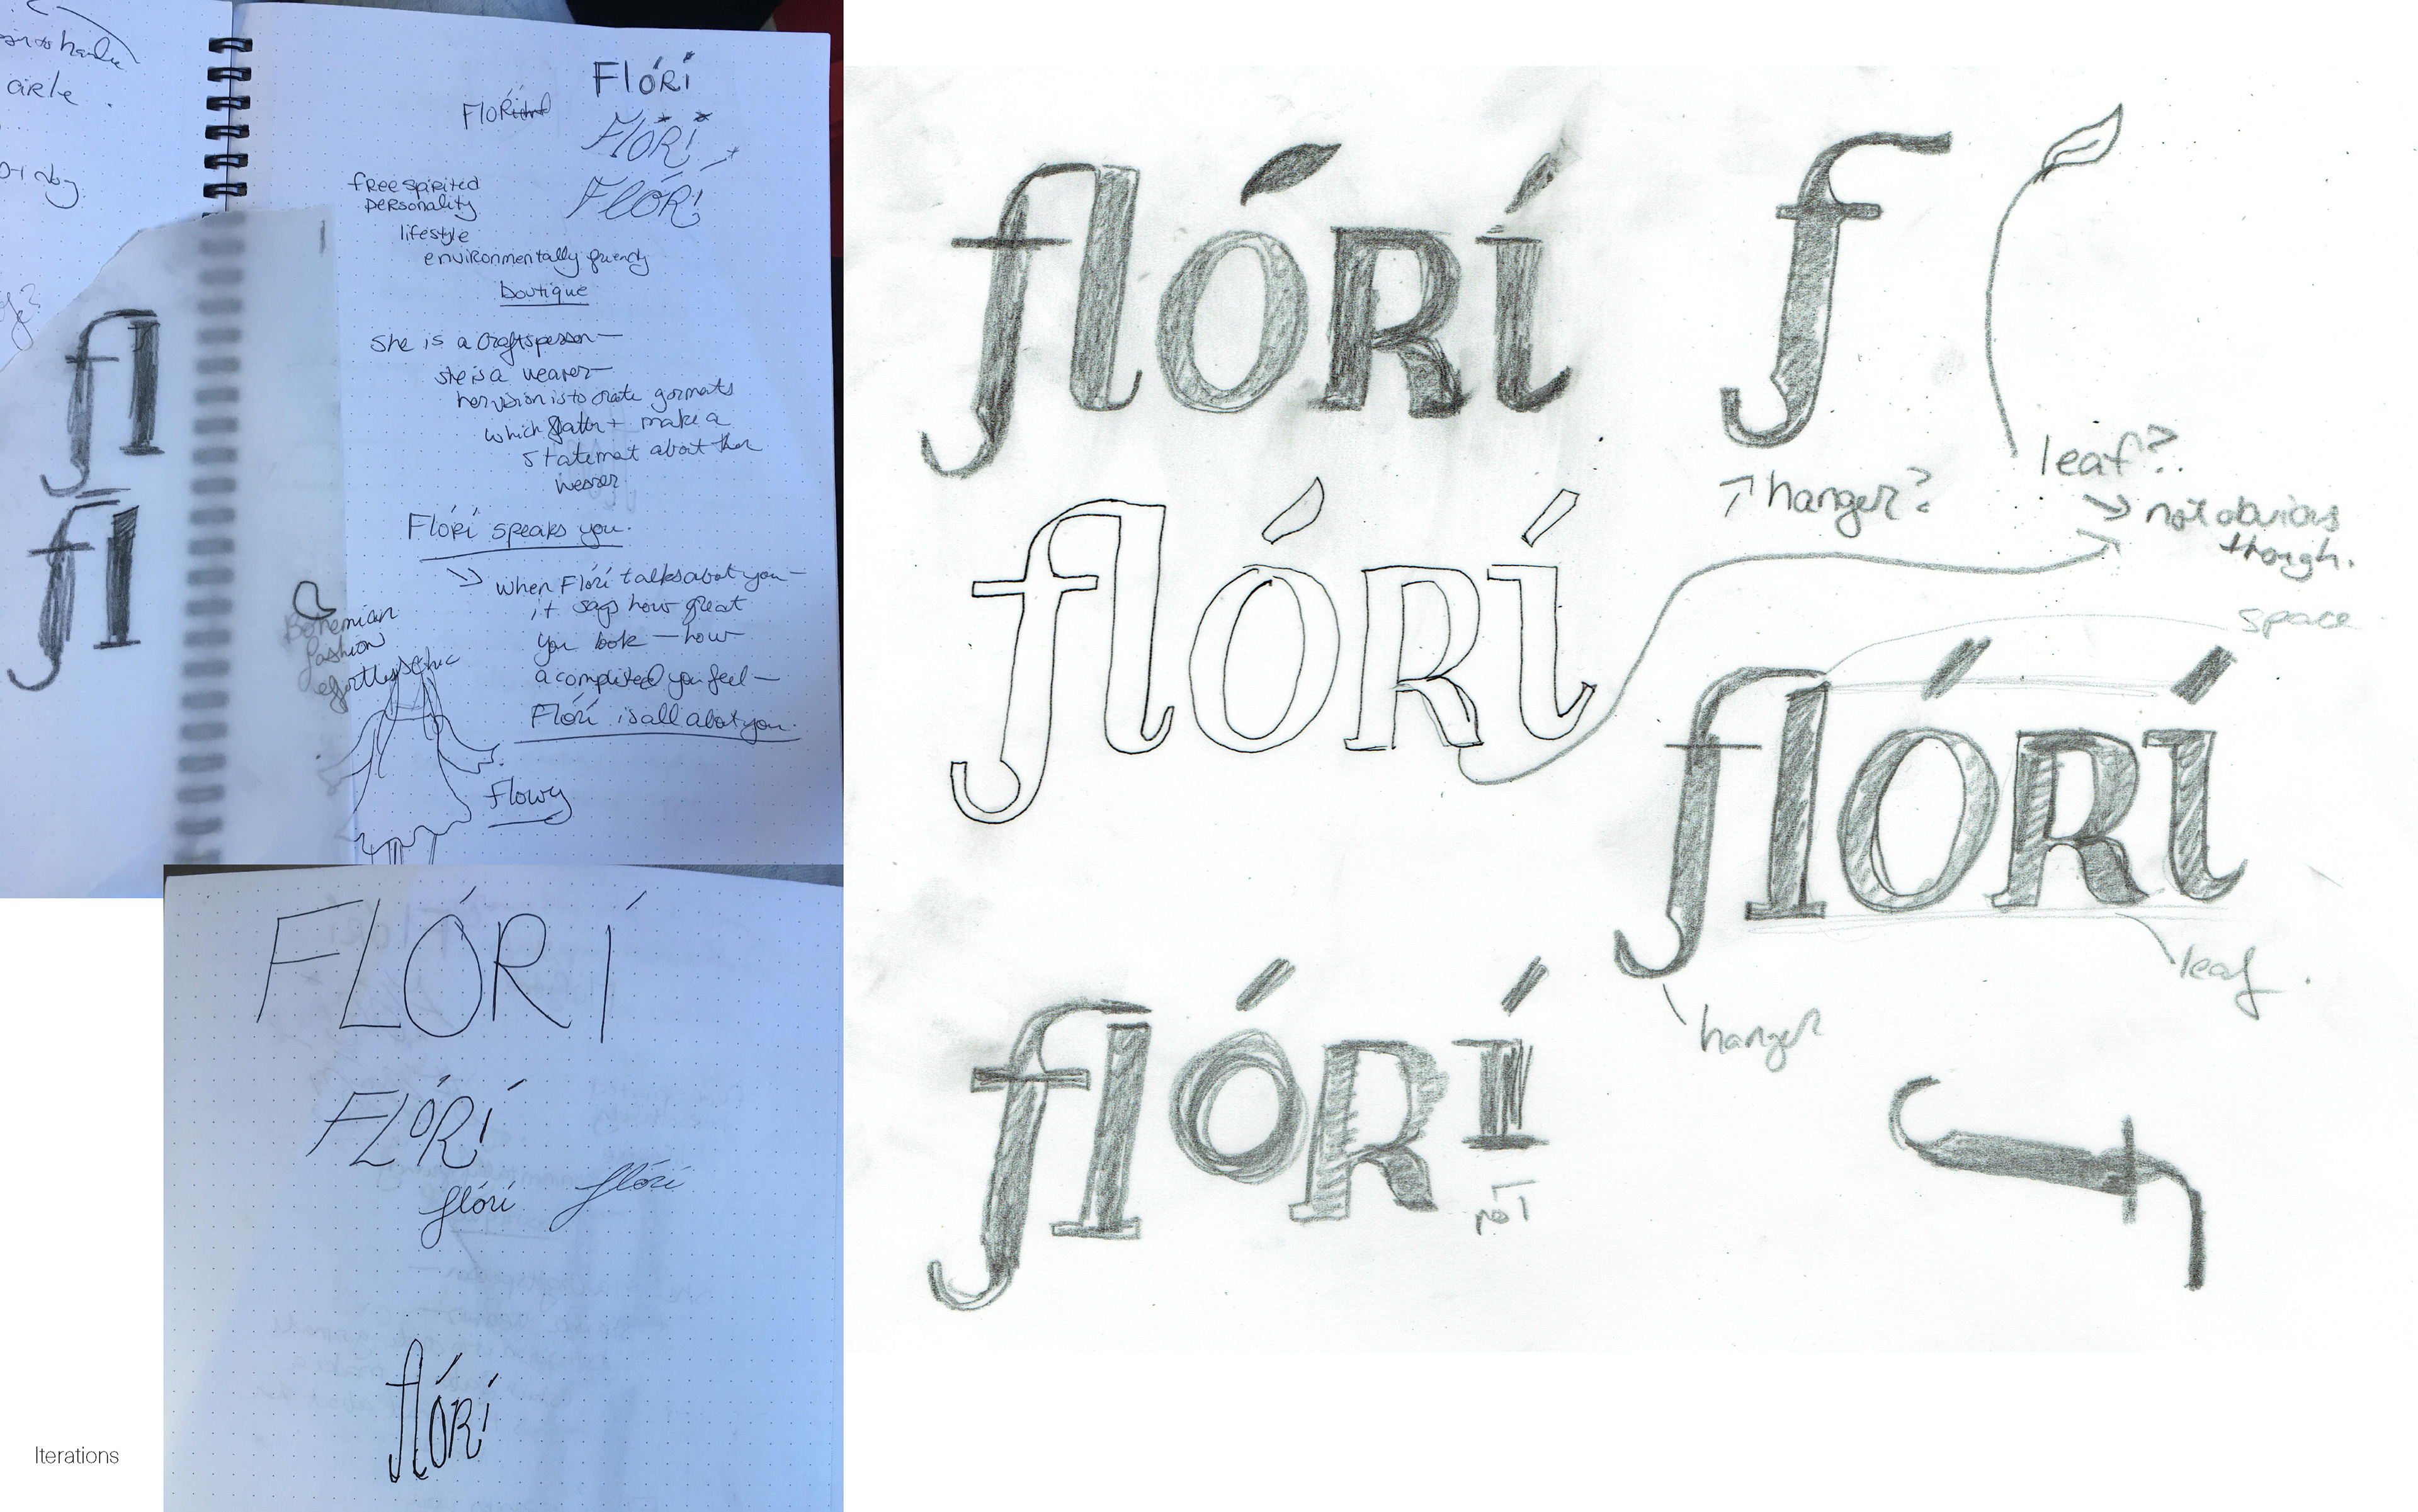 circle
fl
fl
Flórí
Flóri
Flórí
Flórí
free spirited
personality
lifestyle
environmentally friendly
boutique
she is a craftsperson—
she is a wearer—
her vision is to create garments
which flatter + make a
statement about the
wearer
Flórí speaks you.
when Flórí talks about you—
it says how great
you look — how
accomplished you feel—
Flórí is all about you.
Bohemian
fashion
effortless chic
Flowy
FLÓRÍ
FLÓRÍ
flórí
flórí
flóRí
Iterations
flóRí
f
hanger?
leaf?
not obvious
though.
flóRí
space
flóRí
leaf.
hanger
flóRí
not